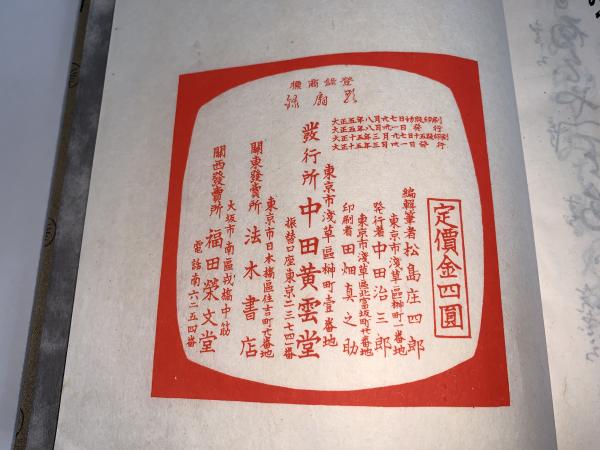 登錄商標
大正五年八月廿七日初版印刷
大正五年八月卅一日發行
大正十五年三月廿七日十五版印刷
大正十五年三月卅一日發行
定價金四圓
編輯筆者 松島庄四郎
東京市淺草區榊町一番地
發行者 中田治三郎
東京市淺草區北富坂町廿番地
印刷者 田畑真之助
東京市淺草區榊町壹番地
發行所 中田黄雲堂
振替口座東京二三七四一番
東京市日本橋區住吉町廿番地
關東發賣所 法木書店
大坂市南區戎橋中筋
關西發賣所 福田榮文堂
電話南六二五四番